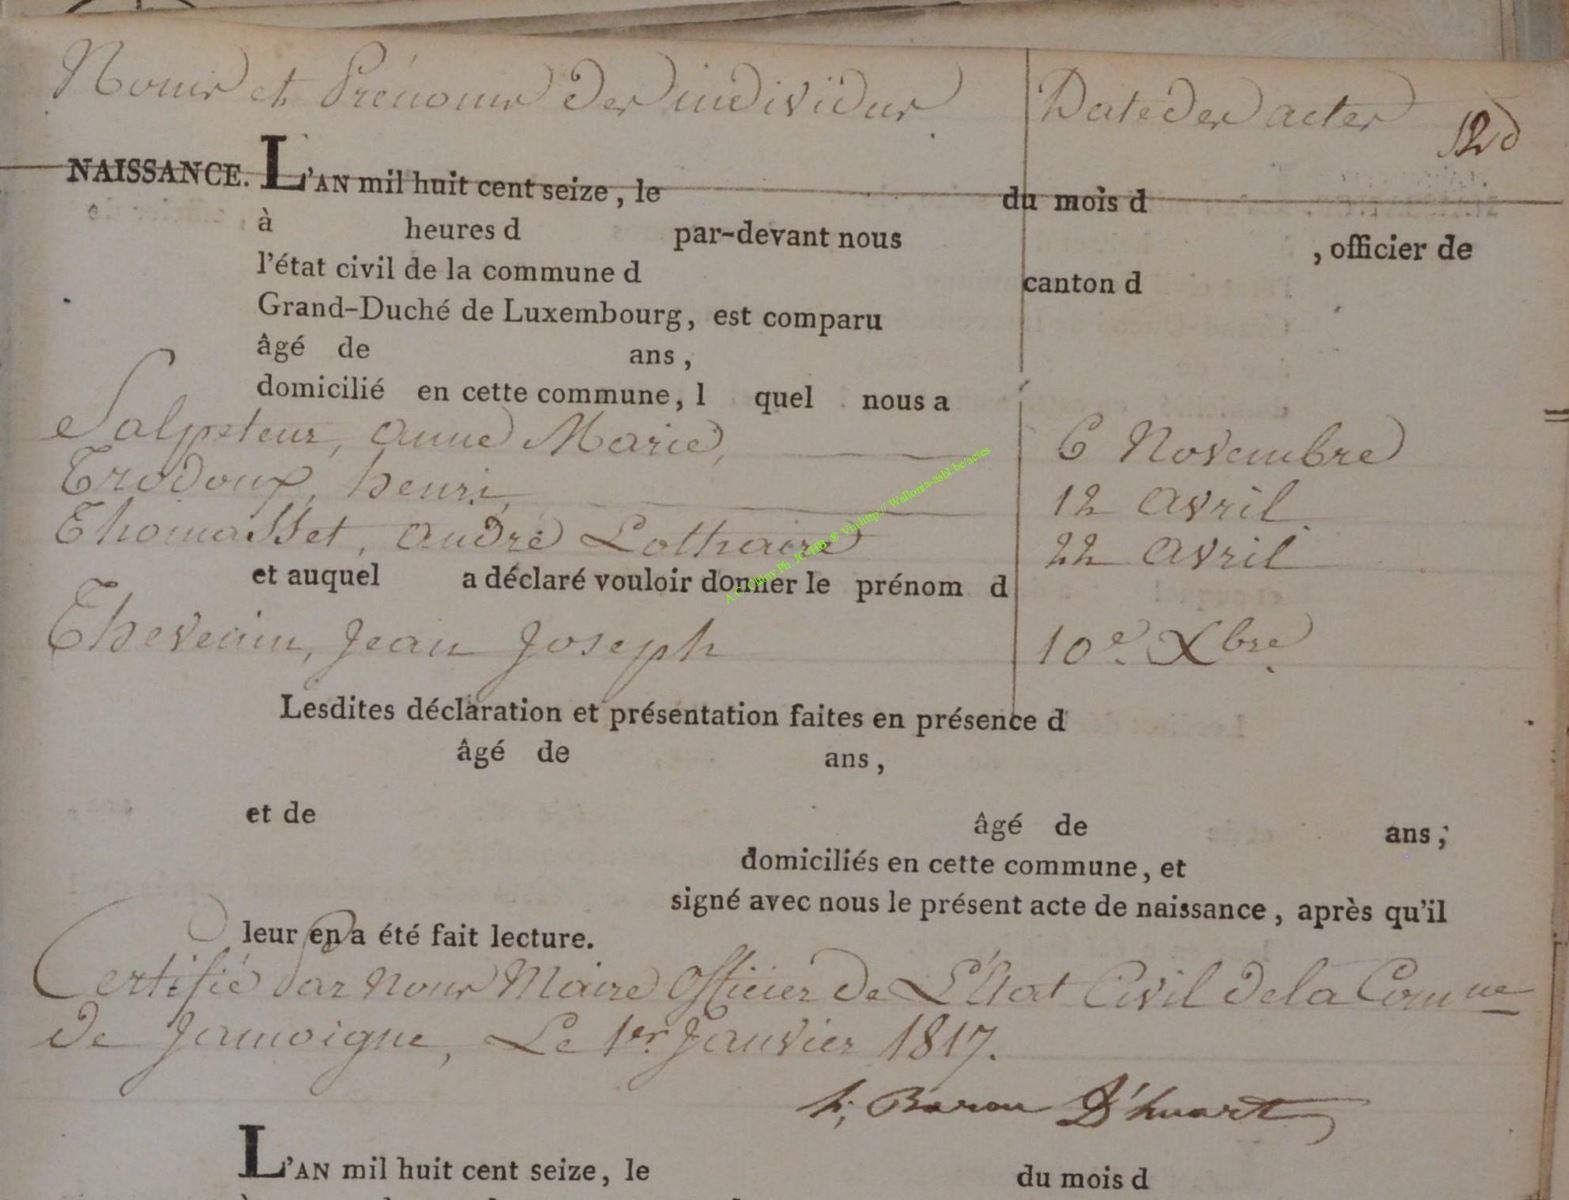 Noms et Prénoms des individus Date des actes
12
NAISSANCE. L'AN mil huit cent seize, le du mois d
à heures d par-devant nous , officier de
l'état civil de la commune d canton d
Grand-Duché de Luxembourg, est comparu
âgé de ans,
domicilié en cette commune, l quel nous a
Salpeteur, anne Marie, 6 Novembre
Trodoux, henri, 12 avril
Thomasset, andré Lothaire 22 avril
et auquel a déclaré vouloir donner le prénom d
Thevenin, Jean Joseph 10e. Xbre
Lesdites déclaration et présentation faites en présence d
âgé de ans,
et de âgé de ans,
domiciliés en cette commune, et
signé avec nous le présent acte de naissance, après qu'il
leur en a été fait lecture.
Certifié par nous Maire Officier de L'Etat Civil de la Comune
de Jamoigne, Le 1er. Janvier 1817.
h, Baron D'huart
L'AN mil huit cent seize, le du mois d